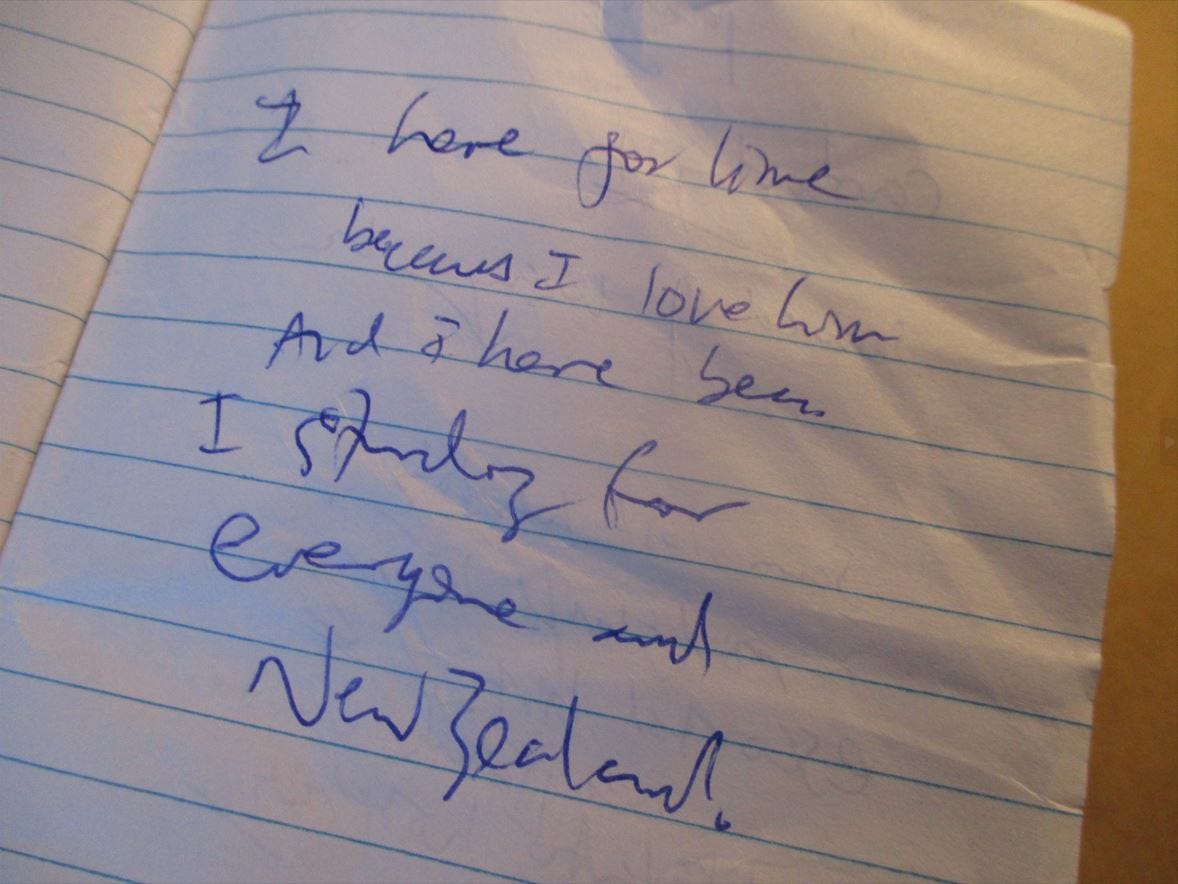 I have for time
becaus I love him
And I have been
I study for
everyone and
New Zealand.